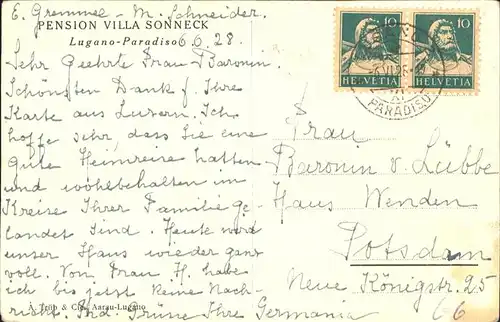 E. Gremmel - M. Schneider.
PENSION VILLA SONNECK
Lugano-Paradiso 6.6.28.
Sehr Geehrte Frau Baronin.
Schönsten Dank f. Ihre
Karte aus Luzern. Ich
hoffe sehr, dass Sie eine
Gute Heimreise hatten
und wohlbehalten im
Kreise Ihrer Familie ge-
landet sind. Heute wird
unser Haus wieder ganz
voll. Von Frau H. habe
ich bis jetzt keine Nach-
richt. Ihre Germania
A. Trüb & Cie., Aarau-Lugano
10 10
HELVETIA HELVETIA
PARADISO
Frau
Baronin v. Lübbe
Haus Wenden
Potsdam
Neue Königstr. 25
66